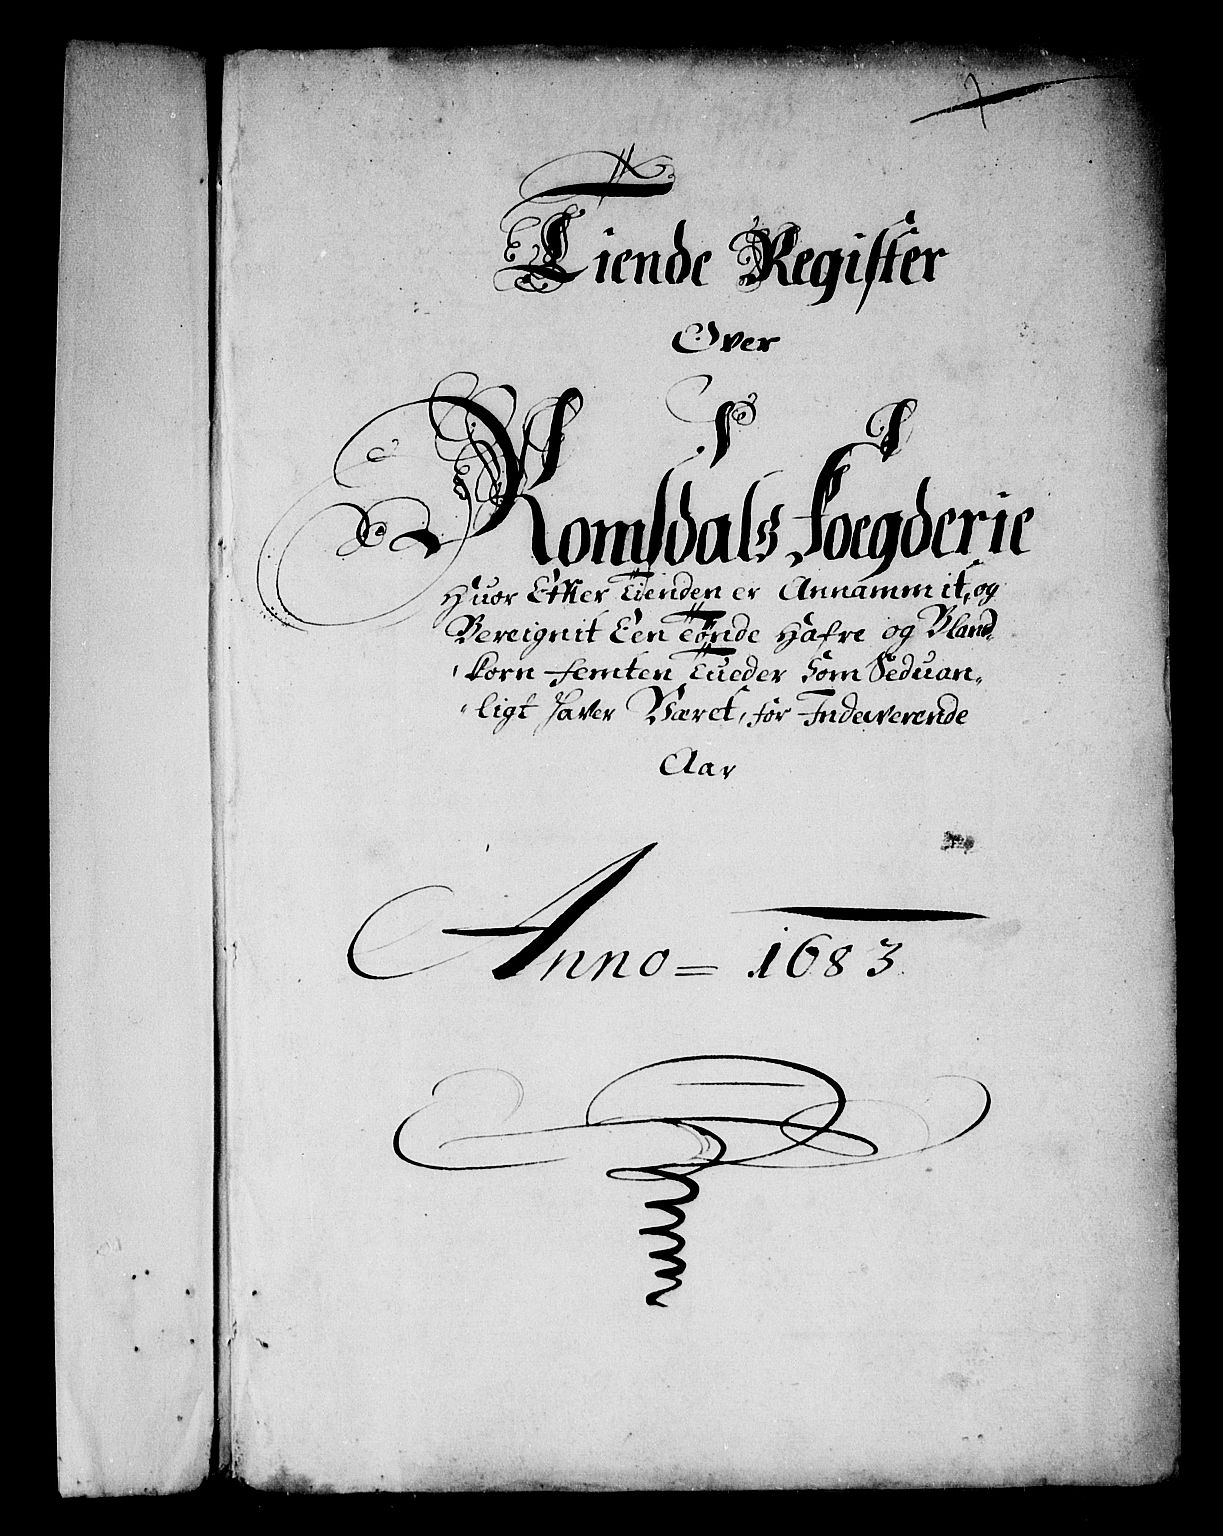 Tiende Register
Over
Romsdals foegderie
Huor Effter Tienden er Annammit, og
Bereignit Een Tønde Hafre og Bland
korn femten Tueder Som Seduan
ligt haver Været, for Indeværende
Aar
Anno = 1683